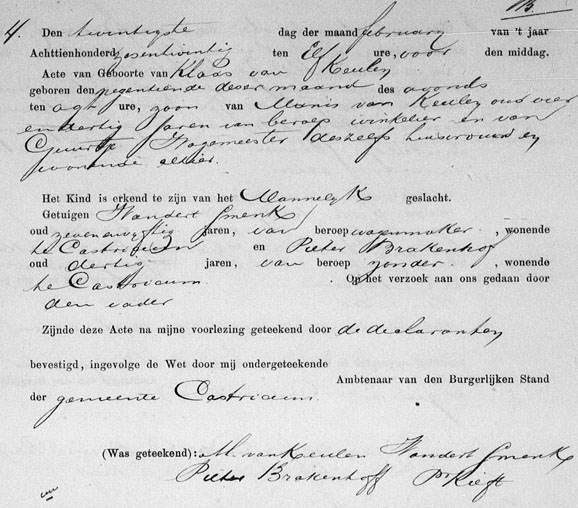 13.
4. Den twintigste dag der maand february van 't jaar
Achttienhonderd zesentwintig ten Elf ure, voor den middag.
Acte van Geboorte van Klaas van Keulen
geboren den negentiende deser maand des avonds
ten agt ure, zoon van Manis van Keulen oud vier
en dertig Jaren van beroep winkelier en van
Guurtje Hogemeester deszelfs huisvrouw en
wonende alhier.
Het Kind is erkend te zijn van het Mannelyk geslacht.
Getuigen Wandert Smenk
oud zevenenvyftig jaren, van beroep wagenmaker, wonende
te Castricum en Pieter Brakenhof
oud dertig jaren, van beroep zonder, wonende
te Castricum. Op het verzoek aan ons gedaan door
den vader
Zijnde deze Acte na mijne voorlezing geteekend door de declaranten
bevestigd, ingevolge de Wet door mij ondergeteekende
Ambtenaar van den Burgerlijken Stand
der gemeente Castricum.
(Was geteekend): M. van Keulen Wandert Smenk
Pieter Brakenhoff P. Kieft